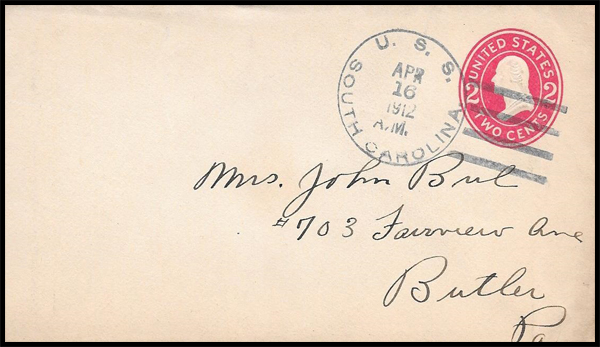 U. S. S.
SOUTH CAROLINA
APR
16
1912
A.M.
UNITED STATES
2 2
TWO CENTS
Mrs. John Bul
#703 Fairview Ave
Butler
Pa